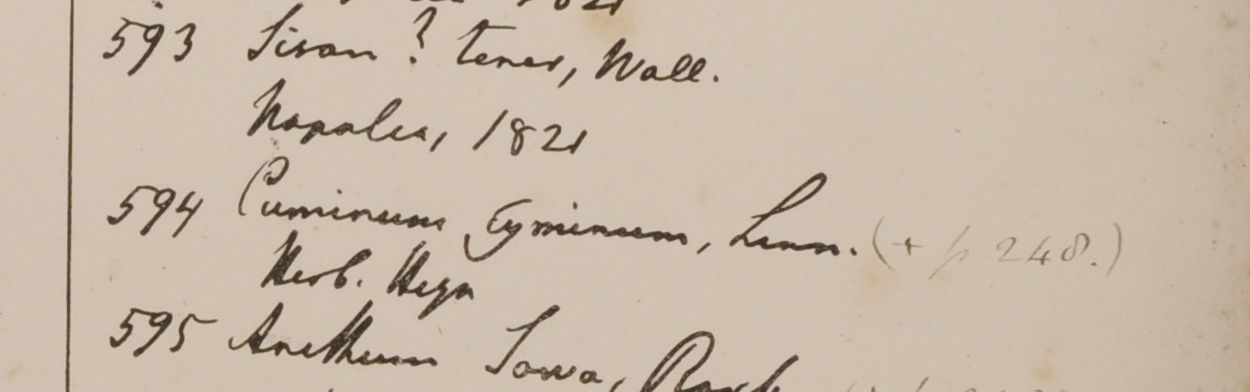 1821
593 Sison? tener, Wall.
Napalia, 1821
594 Cuminum Cyminum, Linn. (+ p 248.)
Herb. Heyn
595 Anethum Sowa, Roxb